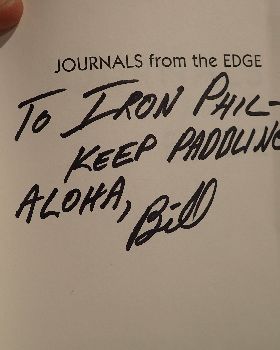 JOURNALS from the EDGE
TO IRON PHIL-
KEEP PADDLING
ALOHA,
Bill